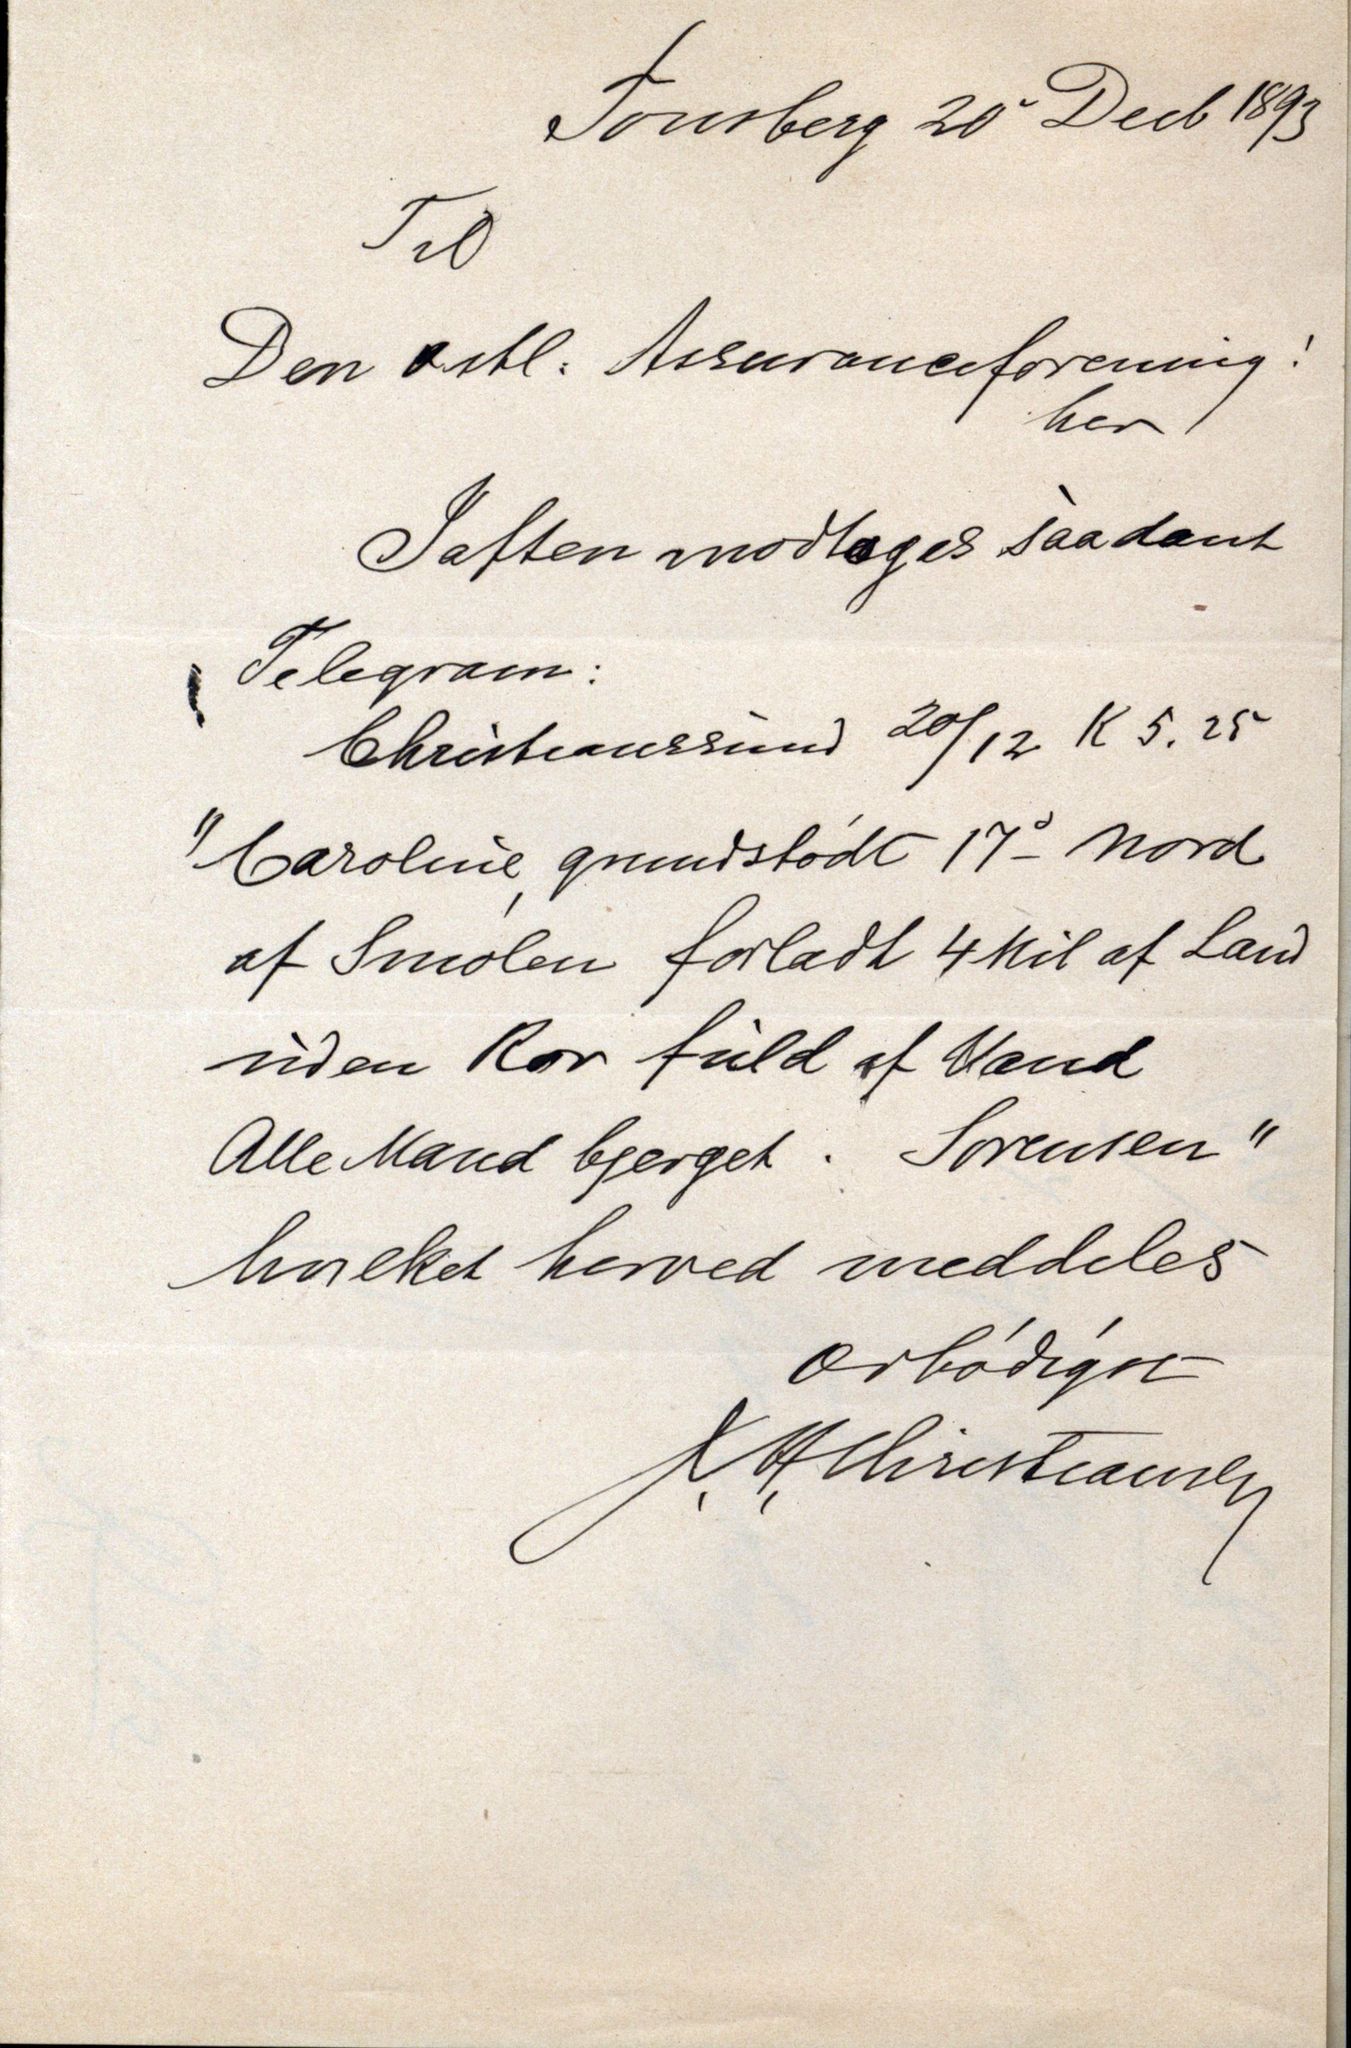 Tønsberg 20 Decb 1893
Til
Den østl. Assuranceforening!
her
Iaften modtoges saadant
Telegram:
Christianssund 20/12 K 5.25
"Caroline, grundstødt 17d Nord
af Smólen forladt 4 Mil af Land
uden Ror fuld af Vand
Alle Mand bjerget. Sorensen"
hvilket herved meddeles
ærbódigst
Christiansen